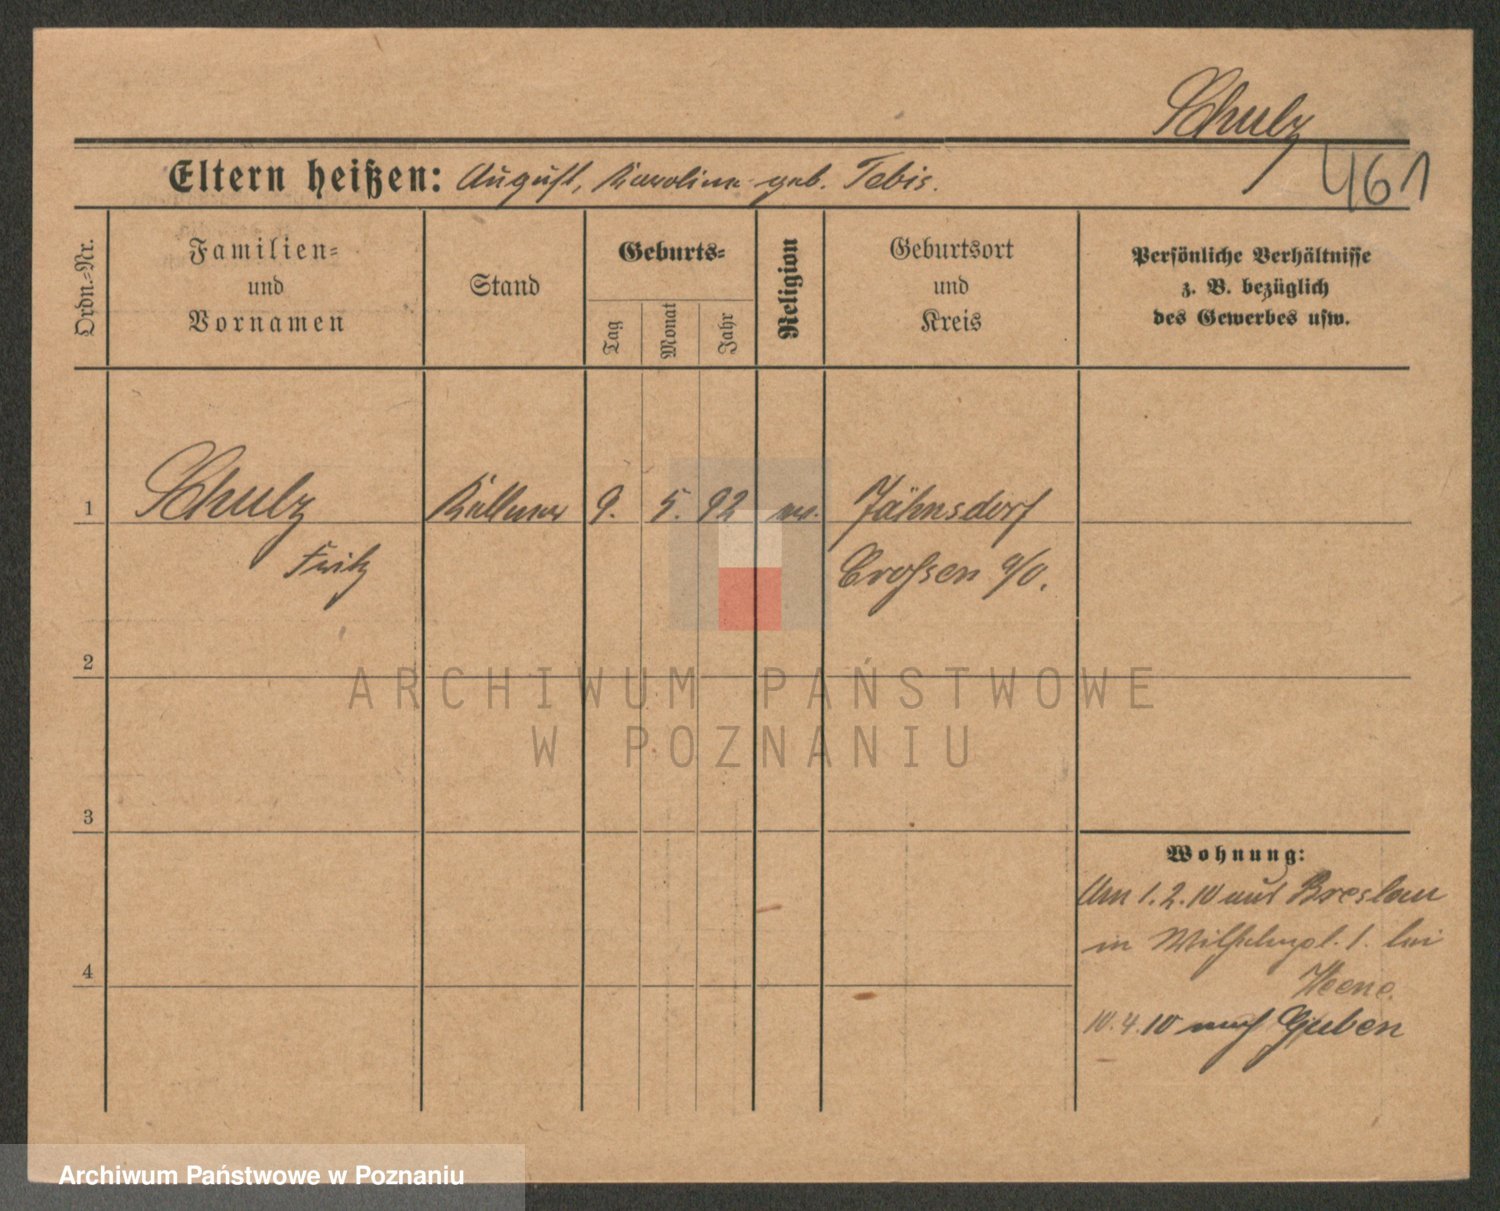 Schulz
461
Eltern heißen: August, Karoline geb. Tebis.
Ordn.=Nr.
Familien=
und
Vornamen
Stand
Geburts=
Tag
Monat
Jahr
Religion
Geburtsort
und
Kreis
Persönliche Verhältnisse
z. B. bezüglich
des Gewerbes usw.
1
Schulz
Fritz
Kellner
9. 5. 92
ev.
Jähnsdorf
Crossen a/O.
2
3
4
Wohnung:
Am 1.2.10 aus Breslau
in Wilhelmpl. 1. bei
10.4.10 nach Guben
ARCHIWUM PAŃSTWOWE
W POZNANIU
Archiwum Państwowe w Poznaniu